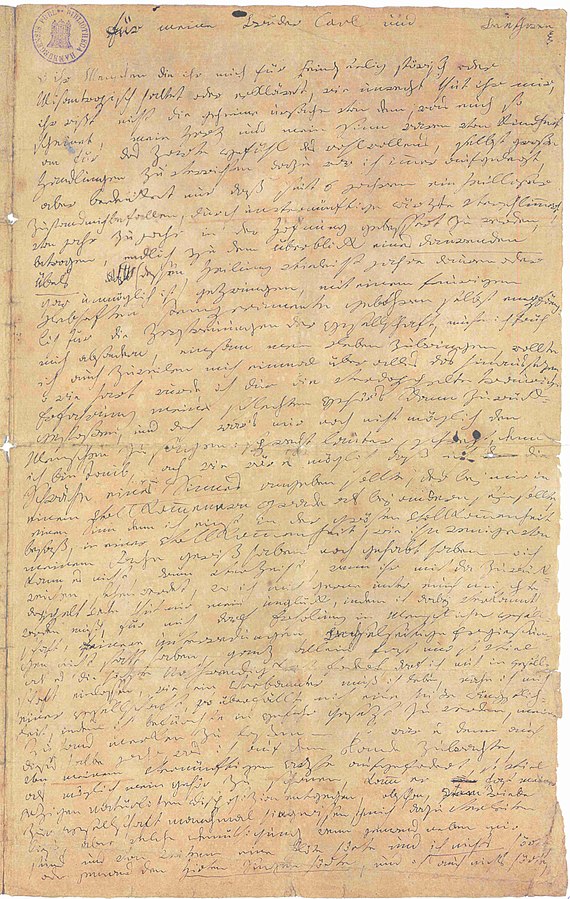 für meine Brüder Carl und Beethoven
O ihr Menschen die ihr mich für Feindseelig störisch oder
Misantropisch haltet oder erkläret, wie unrecht thut ihr mir,
ihr wißt nicht die geheime ursache von dem, was euch so
scheinet, mein Herz und mein Sinn waren von Kindheit
an für das Zarte Gefühl des wohlwollens, selbst große
Handlungen zu verrichten dazu war ich immer aufgelegt,
aber bedenket nur daß seit 6 jahren ein heilloser
Zustand mich befallen, durch unvernünftige ärzte verschlimmert,
von jahr zu jahr in der Hofnung gebessert zu werden,
betrogen, endlich zu dem überblick eines daurenden
Übels dessen Heilung vieleicht jahre dauren oder
gar unmöglich ist gezwungen, mit einem feurigen
Lebhaften Temperamente gebohren selbst empfäng-
lich für die Zerstreuungen der Gesellschaft, muste ich früh
mich absondern, einsam mein Leben zubringen, wollte
ich auch zuweilen mich einmal über alles das hinaussezen,
o wie hart wurde ich dur die verdoppelte traurige
Erfahrung meines schlechten Gehör's dann zurück-
gestoßen, und doch war's mir noch nicht möglich den
Menschen zu sagen: sprecht lauter, schreyt, denn
ich bin Taub, ach wie wär es möglich daß ich die
Schwäche eines Sinnes angeben sollte, der bey mir in
einem Vollkommenern Grade als bey andern seyn sollte,
einen sinn den ich einst in der grösten Vollkommenheit
besaß, in einer Vollkommenheit, wie ihn wenige von
meinem Fache gewiß haben noch gehabt haben – o ich
kann es nicht, drum verzeiht, wenn ihr mich da zurück-
weichen sehen werdet, wo ich mich gerne unter euch mischte,
doppelt wehe thut mir mein unglück, indem ich dabey verkannt
werden muß, für mich darf Erholung in Menschlicher Gesell-
schaft, feinere unterredungen, wechselseitige Ergießun-
gen nicht statt haben, ganz allein fast nur so viel
als es die höchste Nothwendigkeit fodert, darf ich mich in gesell-
schaft einlassen, wie ein Verbannter muß ich leben, nahe ich mich
einer Gesellschaft, so überfällt mich eine heiße ängstlich-
keit, indem ich befürchte in Gefahr gesezt zu werden, meinen
Zustand merken zu laßen – so war es denn auch
dieses halbe jahr, was ich auf dem Lande zubrachte,
von meinem Vernünftigen Arzte aufgefodert, so viel
als möglich mein Gehör zu schonen, kamm er fast meiner
jezigen natürlichen Disposizion entgegen, obschon, vom Triebe
zur Gesellschaft manchmal hingerissen, ich mich dazu verleiten
ließ, aber welche Demüthigung wenn jemand neben mir
stund und von weitem eine Flöte hörte und ich nichts hörte
oder jemand den Hirten Singen hörte, und ich auch nichts hörte,